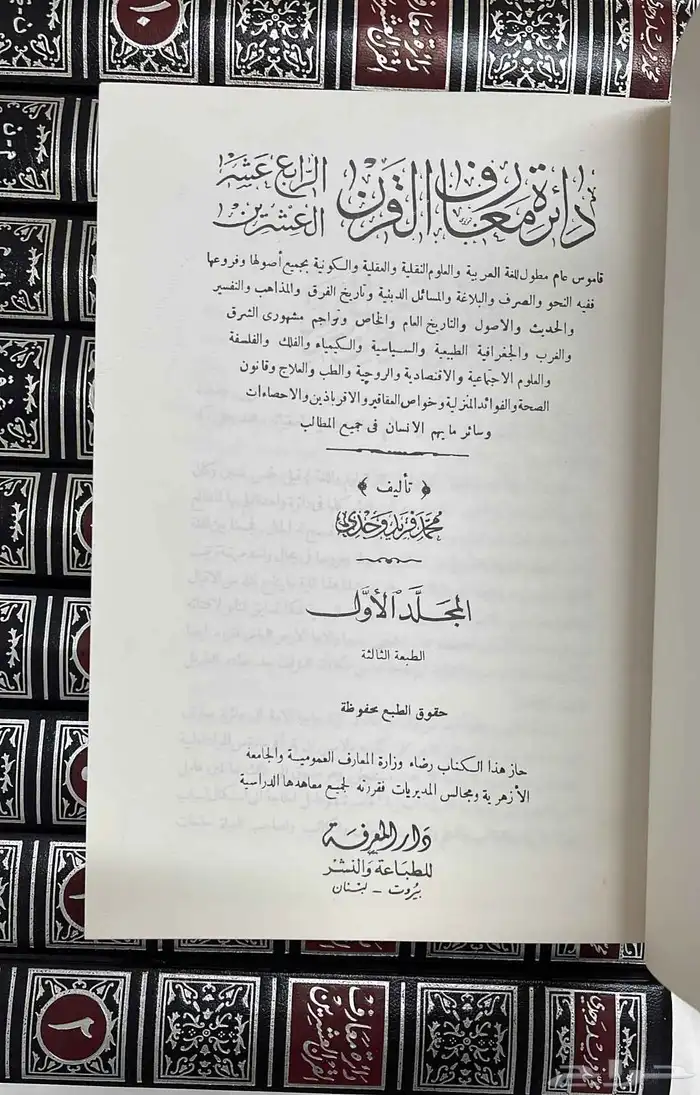 دائرة معارف القرن الرابع عشر العشرين
قاموس عام مطول للغة العربية والعلوم النقلية والعقلية والكونية بجميع أصولها وفروعها
ففيه النحو والصرف والبلاغة والمسائل الدينية وتاريخ الفرق والمذاهب والتفسير
والحديث والاصول والتاريخ العام والخاص وتراجم مشهورى الشرق
والغرب والجغرافية الطبيعية والسياسية والكيمياء والفلك والفلسفة
والعلوم الاجتماعية والاقتصادية والروحية والطب والعلاج وقانون
الصحة والفوائد المنزلية وخواص العقاقير والاقرباذين والاحصاءات
وسائر ما يهم الانسان فى جميع المطالب
﴿ تأليف ﴾
محمد فريد وجدي
المجلد الأول
الطبعة الثالثة
حقوق الطبع محفوظة
حاز هذا الكتاب رضاء وزارة المعارف العمومية والجامعة
الأزهرية ومجالس المديريات فقررته لجميع معاهدها الدراسية
دار المعرفة
للطباعة والنشر
بيروت - لبنان
١٠
دائرة معارف
القرن العشرين
محمد فريد وجدي
٢
دائرة معارف
القرن العشرين
محمد فريد وجدي
حراج